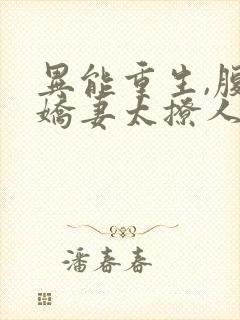 異能重生,腹
嬌妻太撩人
潘春春